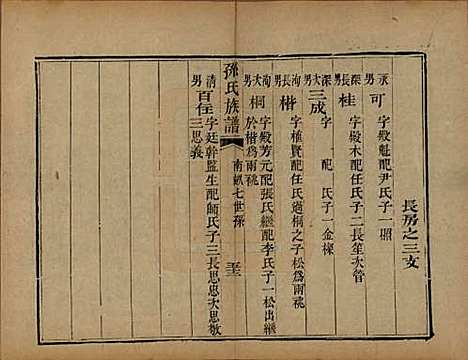 長房之三支
永男 可 字殿魁配尹氏子一照
深長男 桂 字殿木配任氏子二長笙次管
深次男 三成 字 配 氏子一金樑
洵長男 楷 字殿賢配任氏過桐之子松為兩祧
洵次男 桐 字殿芳元配張氏繼配李氏子一松出繼
於楷為兩祧
孫氏族譜
南畝七世孫
清男 百住 字廷幹監生配師氏子三長思忠次思敬
三思義